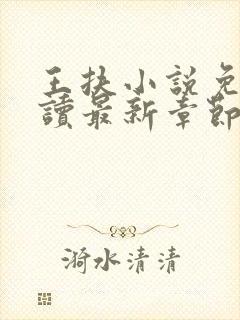 王扶小說免
讀最新章節
漪水清清